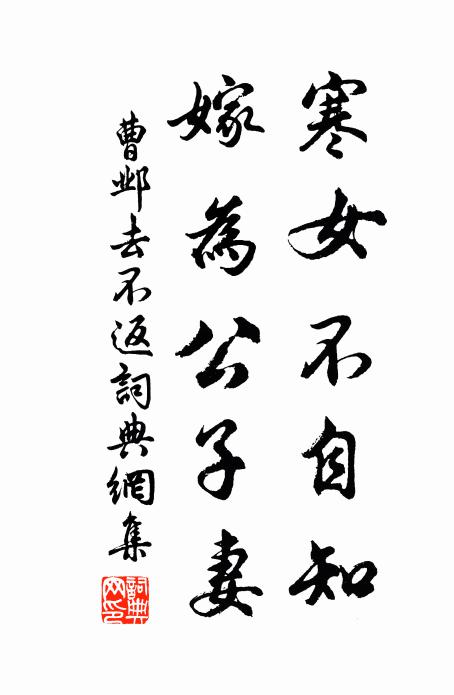 寒女不自知
嫁為公子妻
曹邺去不返詞典網集
詞典